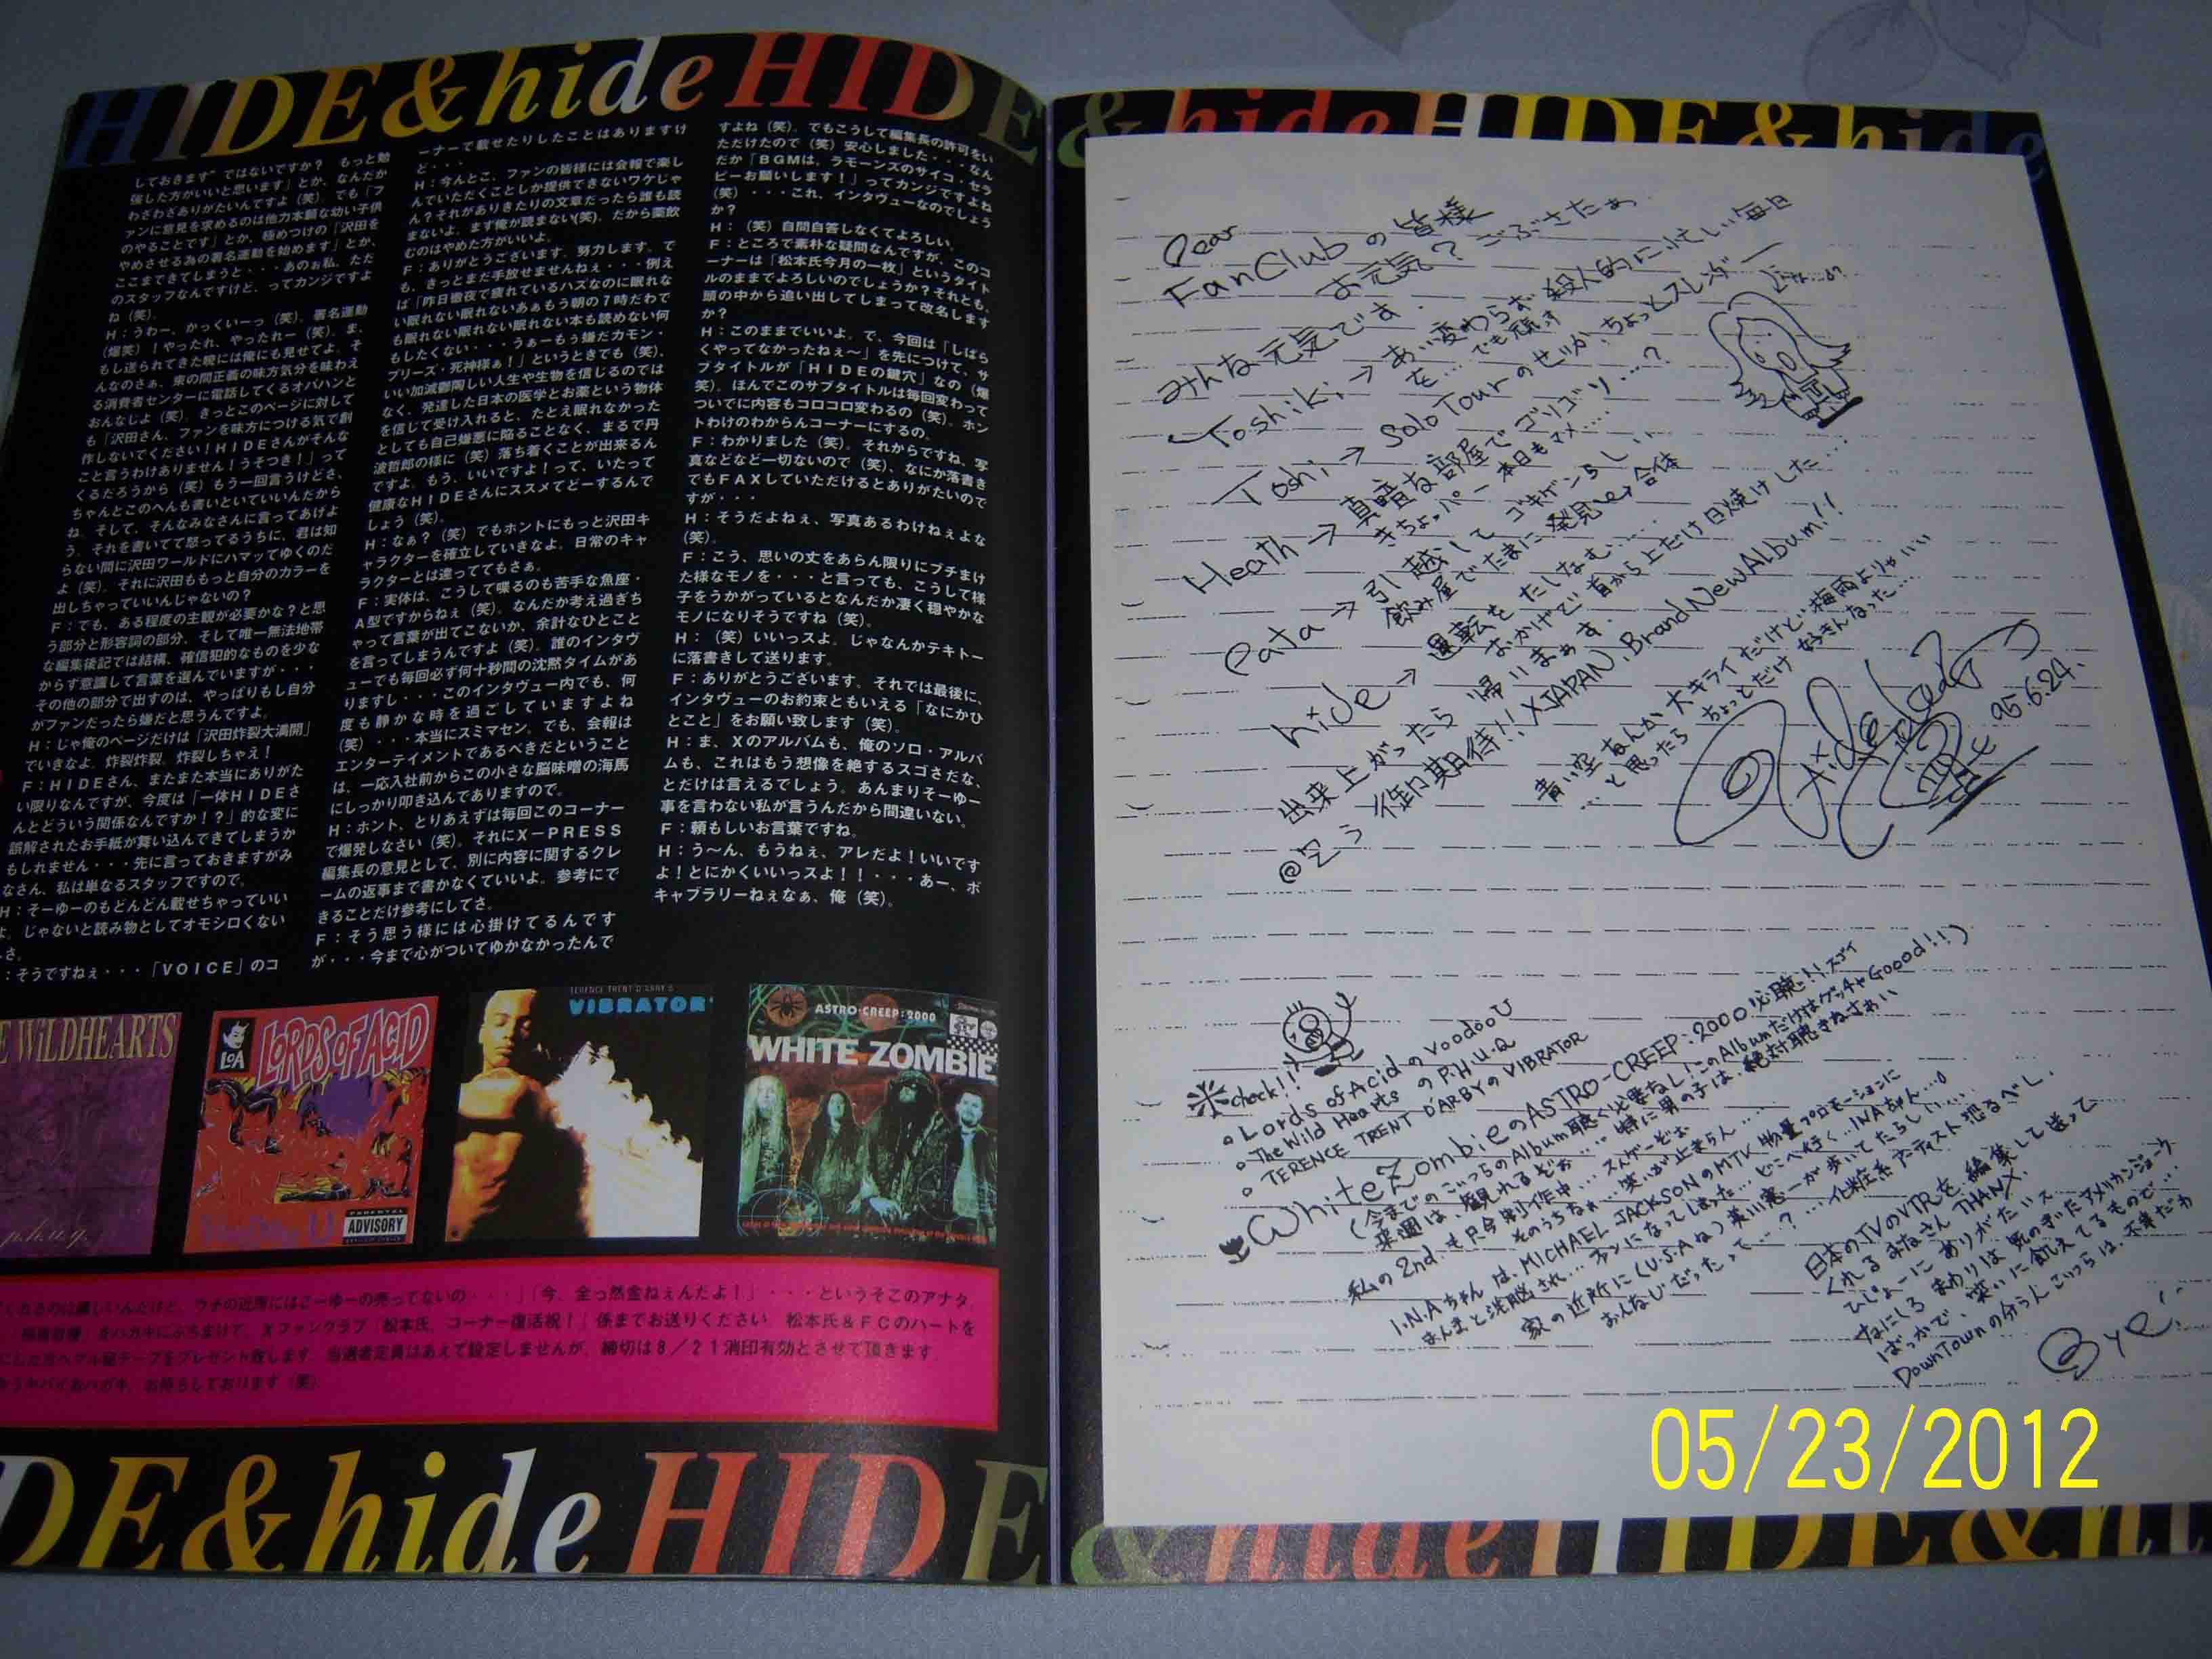 HIDE&hideHIDE
しておきます”ではないですか？ もっと勉
強した方がいいと思います」とか、なんだか
わざわざありがたいんですよ（笑）。でも「フ
ァンに意見を求めるのは他力本願な幼い子供
のやることです」とか、極めつけの「沢田を
やめさせる為の署名運動を始めます」とか、
ここまできてしまうと・・・あのぉ私、ただ
のスタッフなんですけど、ってカンジですよ
ね（笑）。
H：うわー、かっくいーっ（笑）。署名運動
（爆笑）！やったれ、やったれー（笑）。ま、
もし送られてきた暁には俺にも見せてよ。そ
んなのさぁ、束の間正義の味方気分を味わえ
る消費者センターに電話してくるオバハンと
おんなじよ（笑）。きっとこのページに対して
も「沢田さん、ファンを味方につける気で創
作しないでください！HIDEさんがそんな
こと言うわけありません！うそつき！」って
くるだろうから（笑）もう一回言うけどさ、
ちゃんとこのへんも書いといていいんだから
ね。そして、そんなみなさんに言ってあげよ
う。それを書いてて怒ってるうちに、君は知
らない間に沢田ワールドにハマッてゆくのだ
よ（笑）。それに沢田ももっと自分のカラーを
出しちゃっていいんじゃないの？
F：でも、ある程度の主観が必要かな？と思
う部分と形容詞の部分、そして唯一無法地帯
な編集後記では結構、確信犯的なものを少な
からず意識して言葉を選んでいますが・・・
その他の部分で出すのは、やっぱりもし自分
がファンだったら嫌だと思うんですよ。
H：じゃ俺のページだけは「沢田炸裂大満開」
でいきなよ。炸裂炸裂。炸裂しちゃえ！
F：HIDEさん、またまた本当にありがた
い限りなんですが、今度は「一体HIDEさ
んとどういう関係なんですか！？」的な変に
誤解されたお手紙が舞い込んできてしまうか
もしれません・・・先に言っておきますがみ
なさん、私は単なるスタッフですので。
H：そーゆーのもどんどん載せちゃっていい
よ。じゃないと読み物としてオモシロくない
さ。
：そうですねぇ・・・「VOICE」のコ
ーナーで載せたりしたことはありますけ
ど・・・
H：今んとこ、ファンの皆様には会報で楽し
んでいただくことしか提供できないワケじゃ
ん？それがありきたりの文章だったら誰も読
まないよ。まず俺が読まない(笑)。だから薬飲
むのはやめた方がいいよ。
F：ありがとうございます。努力します。で
も、きっとまだ手放せませんねぇ・・・例え
ば「昨日徹夜で疲れているハズなのに眠れな
い眠れない眠れないあぁもう朝の7時だわで
も眠れない眠れない眠れない本も読めない何
もしたくない・・・うぁーもぅ嫌だカモン・
プリーズ・死神様ぁ！」というときでも（笑）、
いい加減鬱陶しい人生や生物を信じるのでは
なく、発達した日本の医学とお薬という物体
を信じて受け入れると、たとえ眠れなかった
としても自己嫌悪に陥ることなく、まるで丹
波哲郎の様に（笑）落ち着くことが出来るん
ですよ。もう、いいですよ！って、いたって
健康なHIDEさんにススメてどーするんで
しょう（笑）。
H：なぁ？（笑）でもホントにもっと沢田キ
ャラクターを確立していきなよ。日常のキャ
ラクターとは違っててもさぁ。
F：実体は、こうして喋るのも苦手な魚座・
A型ですからねぇ（笑）。なんだか考え過ぎち
ゃって言葉が出てこないか、余計なひとこと
を言ってしまうんですよ（笑）。誰のインタヴ
ューでも毎回必ず何十秒間の沈黙タイムがあ
りますし・・・このインタヴュー内でも、何
度も静かな時を過ごしていますよね
（笑）・・・本当にスミマセン。でも、会報は
エンターテイメントであるべきだということ
は、一応入社前からこの小さな脳味噌の海馬
にしっかり叩き込んでありますので。
H：ホント、とりあえずは毎回このコーナー
で爆発しなさい（笑）。それにX-PRESS
編集長の意見として、別に内容に関するクレ
ームの返事まで書かなくていいよ。参考にで
きることだけ参考にしてさ。
F：そう思う様には心掛けてるんです
が・・・今まで心がついてゆかなかったんで
すよね（笑）。でもこうして編集長の許可をい
ただけたので（笑）安心しました・・・なん
だか「BGMは、ラモーンズのサイコ・セラ
ピーお願いします！」ってカンジですよね
（笑）・・・これ、インタヴューなのでしょう
か？
H：（笑）自問自答しなくてよろしい。
F：ところで素朴な疑問なんですが、このコ
ーナーは「松本氏今月の一枚」というタイト
ルのままでよろしいのでしょうか？それとも、
頭の中から追い出してしまって改名します
か？
H：このままでいいよ。で、今回は「しばら
くやってなかったねぇ～」を先につけて、サ
ブタイトルが「HIDEの鍵穴」なの（爆
笑）。ほんでこのサブタイトルは毎回変わって
ついでに内容もコロコロ変わるの（笑）。ホン
トわけのわからんコーナーにするの。
F：わかりました（笑）。それからですね、写
真などなど一切ないので（笑）、なにか落書き
でもFAXしていただけるとありがたいので
すが・・・
H：そうだよねぇ、写真あるわけねぇよな
（笑）。
F：こう、思いの丈をあらん限りにブチまけ
た様なモノを・・・と言っても、こうして様
子をうかがっているとなんだか凄く穏やかな
モノになりそうですね（笑）。
H：（笑）いいっスよ。じゃなんかテキトー
に落書きして送ります。
F：ありがとうございます。それでは最後に、
インタヴューのお約束ともいえる「なにかひ
とこと」をお願い致します（笑）。
H：ま、Xのアルバムも、俺のソロ・アルバ
ムも、これはもう想像を絶するスゴさだな、
とだけは言えるでしょう。あんまりそーゆー
事を言わない私が言うんだから間違いない。
F：頼もしいお言葉ですね。
H：う～ん、もうねぇ、アレだよ！いいです
よ！とにかくいいっスよ！！・・・あー、ボ
キャブラリーねぇなぁ、俺（笑）。
E WiLDHEARTS
p.h.u.q.
LOA
LORDS OF ACID
Voodoo U
PARENTAL
ADVISORY
TERENCE TRENT D'ARBY'S
VIBRATOR
ASTRO-CREEP:2000
WHITE ZOMBIE
くれるのは嬉しいんだけど、ウチの近所にはこーゆーの売ってないの・・・」「今、全っ然金ねぇんだよ！」・・・というそこのアナタ。
をハガキにぶちまけて、Xファンクラブ「松本氏、コーナー復活祝！」係までお送りください。松本氏&FCのハートを
にした方へマル秘テープをプレゼント致します。当選者定員はあえて設定しませんが、締切は8／21消印有効とさせて頂きます。
ヤバイおハガキ、お待ちしております（笑）
DE&hideHIDE
& hideHIDE & hide
Dear
FanClubの皆様
お元気？ ごぶさたぁ
みんな元気です.
Toshiki→あい変わらず 殺人的に忙しい毎日
を… でも頑す
Toshi→Solo Tourのせいか、ちょっとスレンダー
Heath→真暗な部屋でゴリゴリ…？
きちょっパー 本日もマメ…
Pata→引越して ゴキゲンらしい
飲み屋でたまに発見&→合体
hide→運転をたしなむ…
おかげで 首から上だけ日焼けした…
出来上がったら 帰りまぁす.
@乞う御期待!! XJAPAN, Brand New Album!!
青い空なんか大キライだけど 梅雨よりゃいい
…と思ったら ちょっとだけ 好きんなった…
hide '95.6.24.
※check!!
。Lords of AcidのVoodoo U
。The Wild Heartsの P.H.U.Q
。TERENCE TRENT D'ARBYのVIBRATOR
White ZombieのASTRO-CREEP:2000 必聴!!スゴイ
(今までのこっちのAlbum聴く必要なし!このAlbumだけはゲッチャGoood!!)
来週は、観れるぞぉ… 特に男の子は、絶対聴きなーさぁい
私の2nd.も只今制作中… スんゲーぞぉ
そのうちなぁ…笑いが止まらん…
I.N.Aちゃんは、MICHAEL JACKSONのMTV,物量プロモーションに
まんまと洗脳され…ファンになってしまった…どこへ行く…INAちゃん…。
家の近所に(U.S.Aね)美川憲一が歩いてたらしい…
おんなじだったって…？…化粧系アーティスト恐るべし.
日本のTVのVTRを 編集して送って
くれる みなさん THANX.
ひじょーに ありがたいス
なにしろ まわりは 気のぎたアメリカンジョーク
ばっかで、笑いに飢えてるもので…
DownTownの分うんこっつらは、不幸だわ
Bye!!
& hideHIDE & hi
05/23/2012